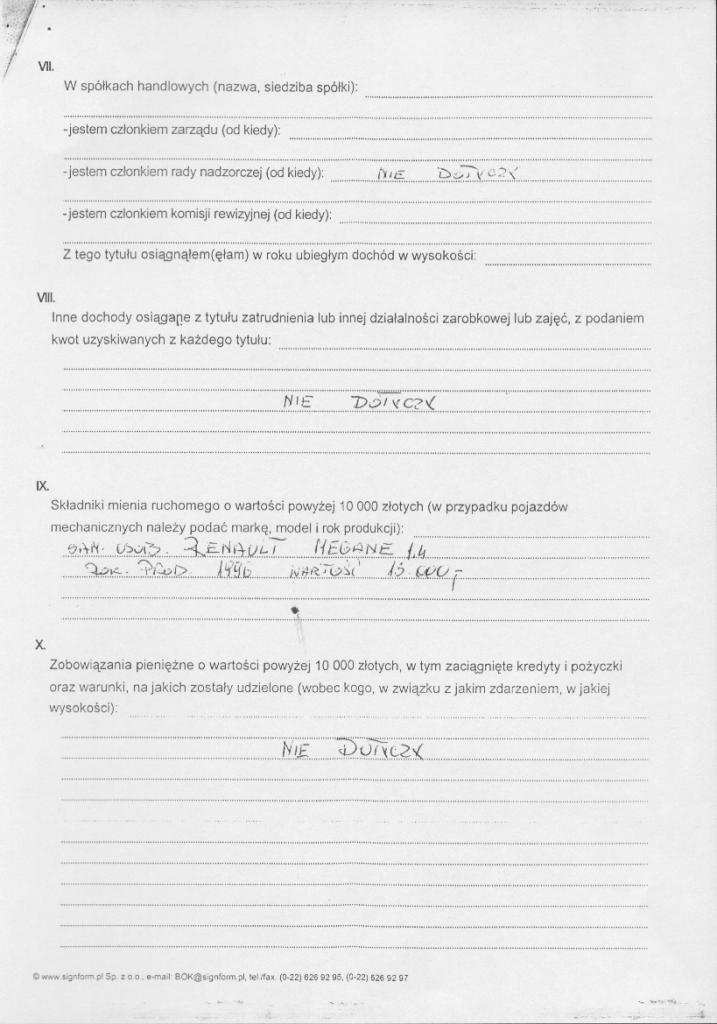 VII.
W spółkach handlowych (nazwa, siedziba spółki):
-jestem członkiem zarządu (od kiedy):
-jestem członkiem rady nadzorczej (od kiedy): NIE DOTYCZY
-jestem członkiem komisji rewizyjnej (od kiedy):
Z tego tytułu osiągnąłem(ęłam) w roku ubiegłym dochód w wysokości:
VIII.
Inne dochody osiągane z tytułu zatrudnienia lub innej działalności zarobkowej lub zajęć, z podaniem
kwot uzyskiwanych z każdego tytułu:
NIE DOTYCZY
IX.
Składniki mienia ruchomego o wartości powyżej 10 000 złotych (w przypadku pojazdów
mechanicznych należy podać markę, model i rok produkcji):
SAM. OSOB. RENAULT MEGANE 1.4
ROK. PROD. 1996 WARTOŚĆ 15.000,-
X.
Zobowiązania pieniężne o wartości powyżej 10 000 złotych, w tym zaciągnięte kredyty i pożyczki
oraz warunki, na jakich zostały udzielone (wobec kogo, w związku z jakim zdarzeniem, w jakiej
wysokości):
NIE DOTYCZY
© www.signform.pl Sp. z o.o., e-mail: BOK@signform.pl, tel./fax. (0-22) 626 92 95, (0-22) 626 92 97